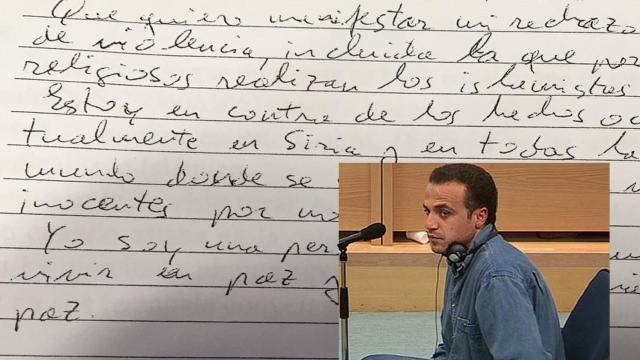 Que quiero manifestar mi rechazo
de violencia, incluida la que por
religiosos realizan los islamistas
Estoy en contra de los hechos oc
tualmente en Siria y en todas la
mundo donde se
inocentes por mo
Yo soy una per
vivir en paz y
paz.